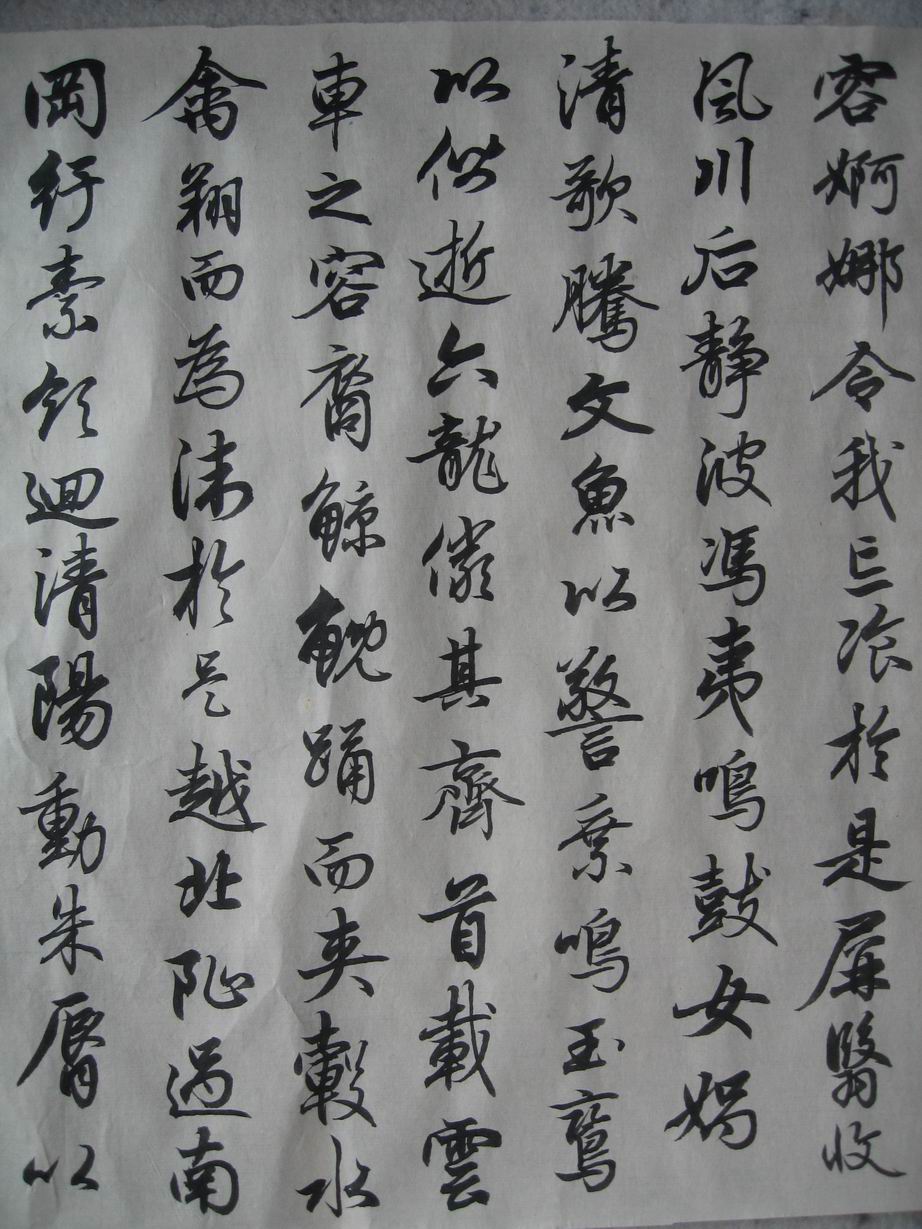 容婀娜令我忘飡於是屏翳收
風川后靜波馮夷鳴鼓女媧
清歌騰文魚以警乘鳴玉鸞
以偕逝六龍儼其齊首載雲
車之容裔鯨鯢踊而夾轂水
禽翔而為沫於是越北沚過南
岡紆素領迴清陽動朱脣以